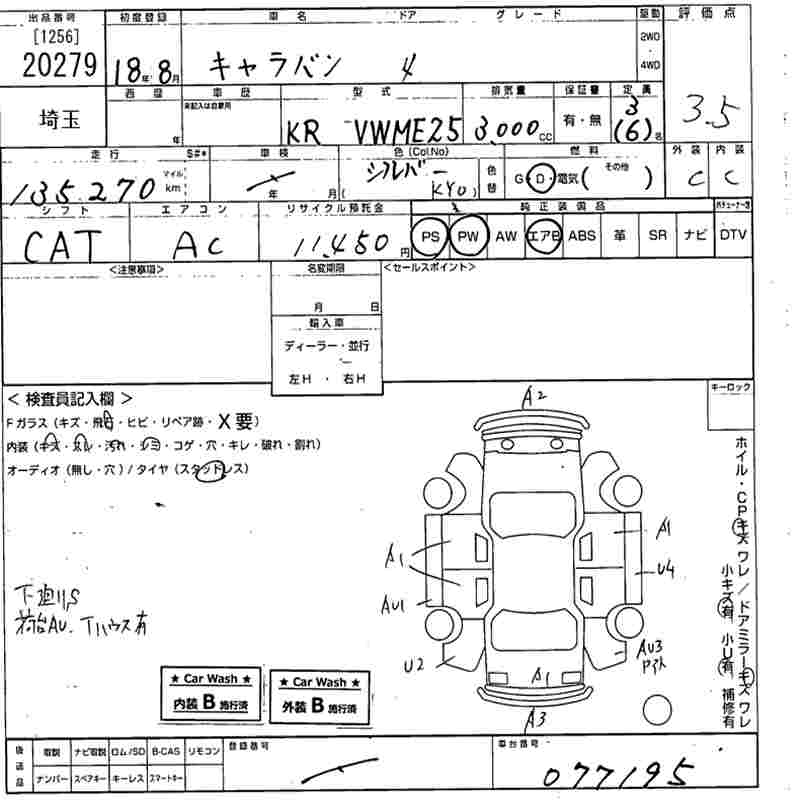 出品番号 初度登録 車名 ドア グレード 駆動 評価点
[1256]
20279 18年8月 キャラバン 4 2WD・4WD 3.5
埼玉 西歴 年 車歴 未記入は自家用 型式 KR VWME25 排気量 3,000cc 保証書 有・無 定員 3(6)名
走行 S#* 車検 色(Col.No) 燃料 外装 内装
135,270 マイル km 年 月 シルバー (KY0) 色替 G・D・電気( その他 ) C C
シフト エアコン リサイクル預託金 純正装備品
CAT AC 11,450円 PS PW AW エアB ABS 革 SR ナビ DTV
<注意事項> 名変期限 <セールスポイント>
月 日
輸入車
ディーラー・並行
左H・右H
<検査員記入欄> キーロック
Fガラス(キズ・飛石・ヒビ・リペア跡・X要)
内装(キズ・スレ・汚れ・シミ・コゲ・穴・キレ・破れ・割れ)
オーディオ(無し・穴)/タイヤ(スタッドレス)
A2
A1 A1
U4
AU1
U2 AU3
A1
A3
下廻りS
荷台AU. Tハウス有
ホイル・CPキズワレ/ドアミラーキズワレ
小キズ有 小U有 補修有
★ Car Wash ★ ★ Car Wash ★
内装B施行済 外装B施行済
後送品 取説 ナビ取説 ロム/SD B-CAS リモコン 登録番号 車台番号
ナンバー スペアキー キーレス スマートキー 077195